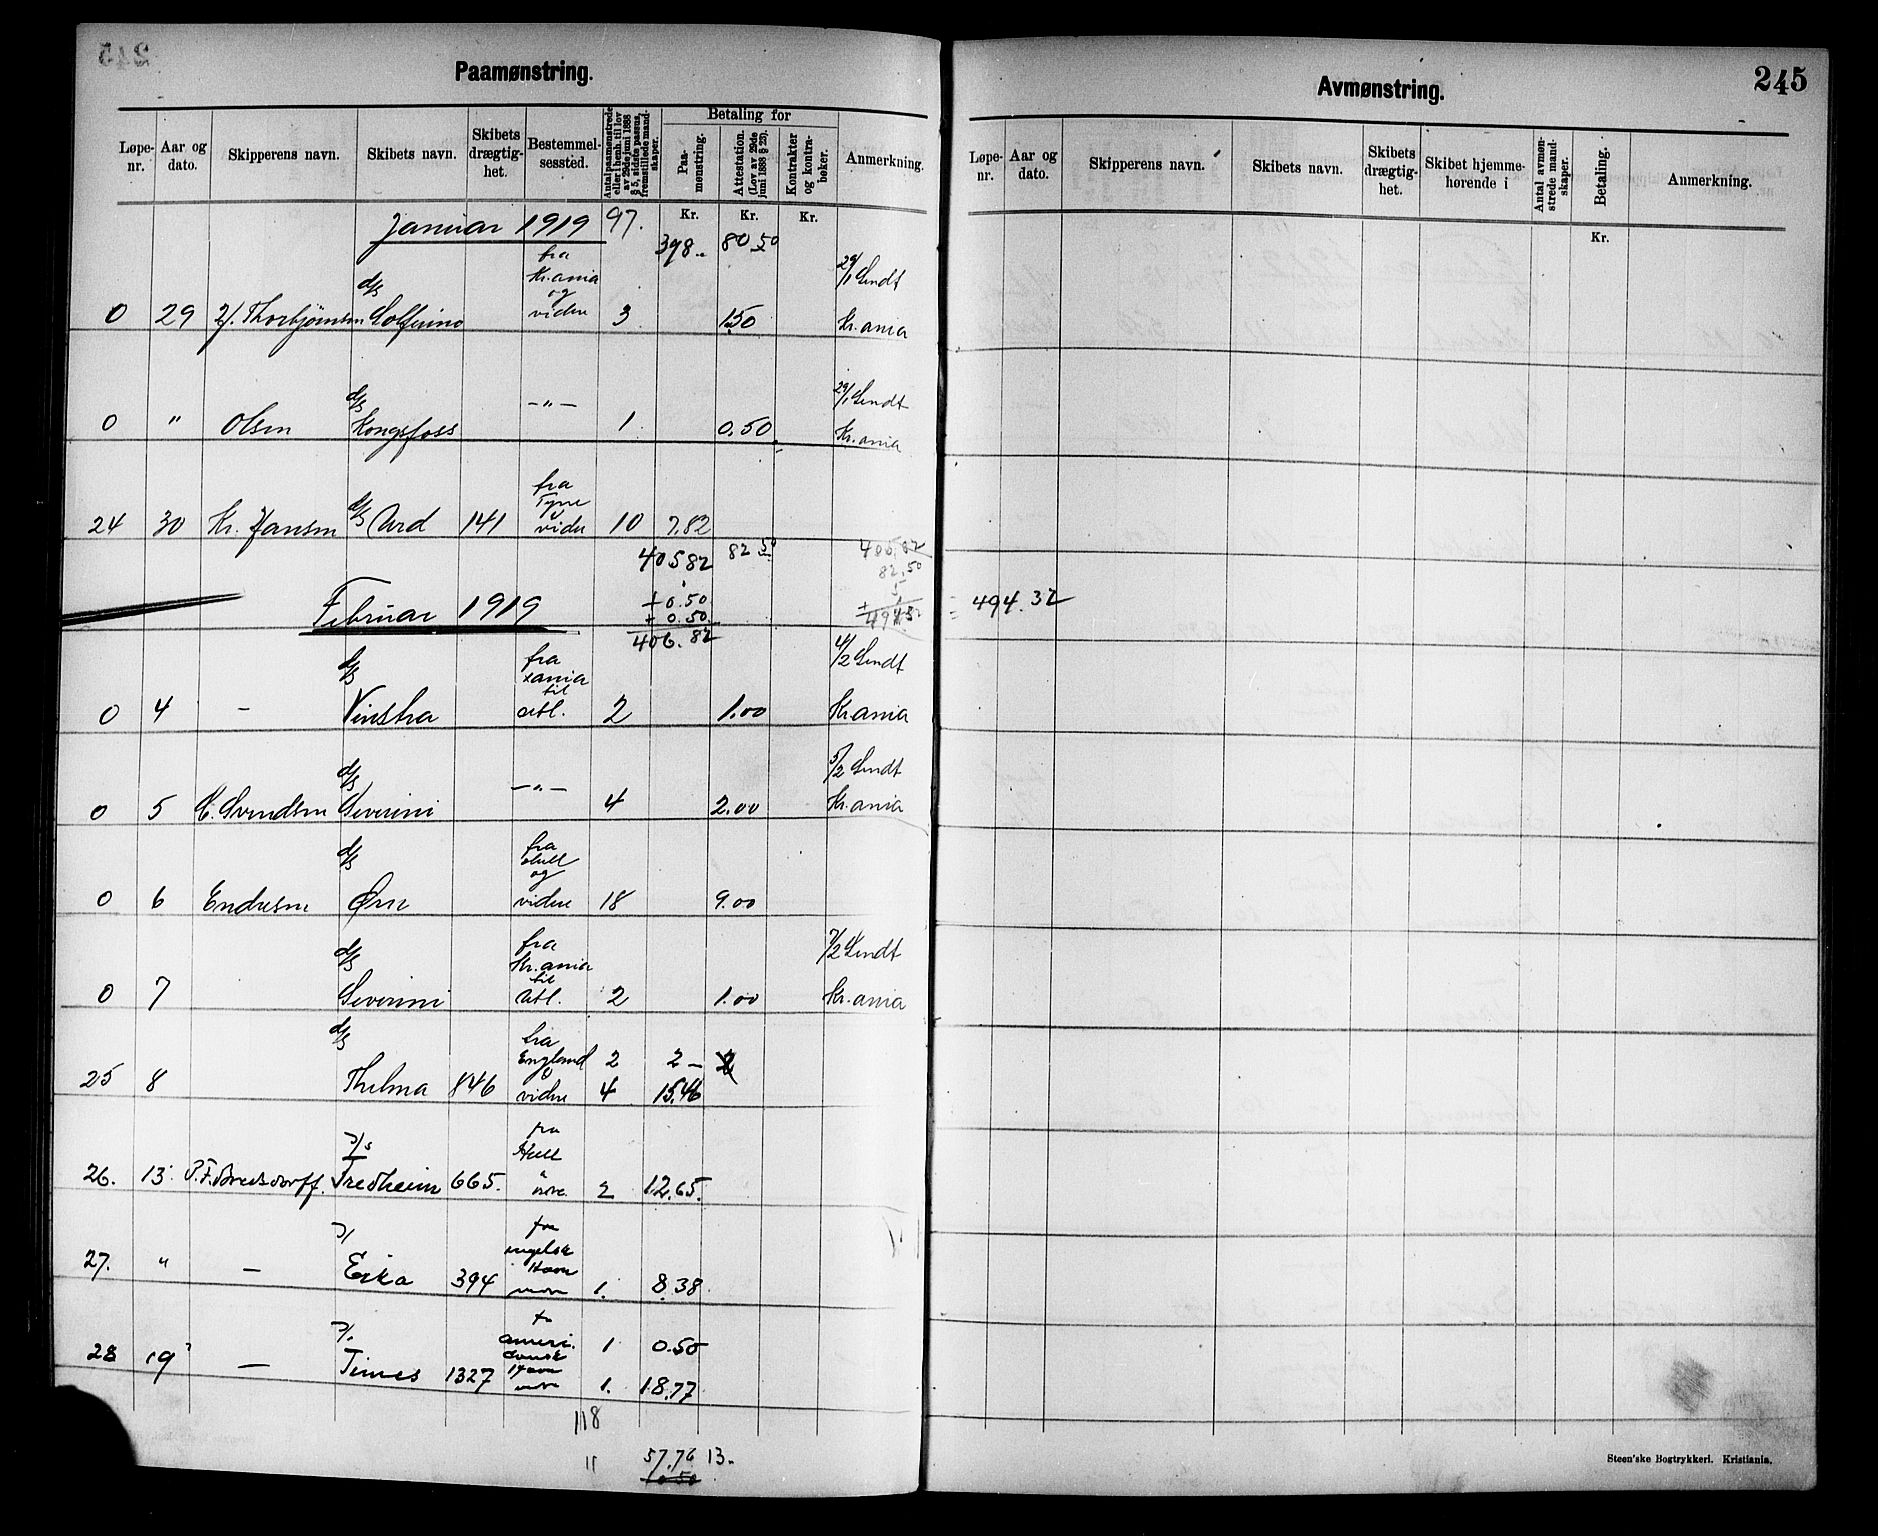 Paamønstring.
Løpe-nr. Aar og dato. Skipperens navn. Skibets navn. Skibets drægtig-het. Bestemmel-sessted. Antal paamønstrede eller i henh. til lov av 29de juni 1888 § 5, sidste passus, fremstillede mand-skaper. Betaling for Paa-mønstring. Attestation. (Lov av 29de juni 1888 § 23). Kontrakter og kontra-bøker. Anmerkning.
Kr. Kr. Kr.
Januar 1919 97. 398.. 80 50
0 29 Thorbjørnsen d/s Solferino fra Kr.ania og videre 3 1.50 29/1 Sendt Kr.ania
0 " Olsen d/s Kongsfoss —"— 1 0.50 29/1 Sendt Kr.ania
24 30 Kr. Jansen d/s Urd 141 fra Tyne videre 10 7,82
405 82 82 50 82,50
Februar 1919 + 0.50
+ 0.50
406.82
0 4 – d/s Vinstra fra til utl. 2 1.00 4/2 Sendt Kr.ania
0 5 Svendsen d/s Severini —"— 4 2.00 5/2 Sendt Kr.ania
0 6 Endresen d/s Ørn fra Hull og videre 18 9.00
0 7 d/s Severini fra Kr.ania til utl. 2 1.00 7/2 Sendt Kr.ania
25 8 d/s Thelma 846 fra England videre 2 2 –
4 15,46
26. 13. P.F. Bredsdorff. D/s Fredheim 665. fra Hull 2 12,65.
27. " — D/ Erka 394 fra engelsk Havn 1. 8.38
28 19 — D/. Times 1327 Havn 1 0.50
1. 18,77
118
11 57,76 13.
0 50
Avmønstring.
245
Løpe-nr. Aar og dato. Skipperens navn. Skibets navn. Skibets drægtig-het. Skibet hjemme-hørende i Antal avmøn-strede mand-skaper. Betaling. Anmerkning.
Kr.
= 494.32
Steen'ske Bogtrykkeri. Kristiania.